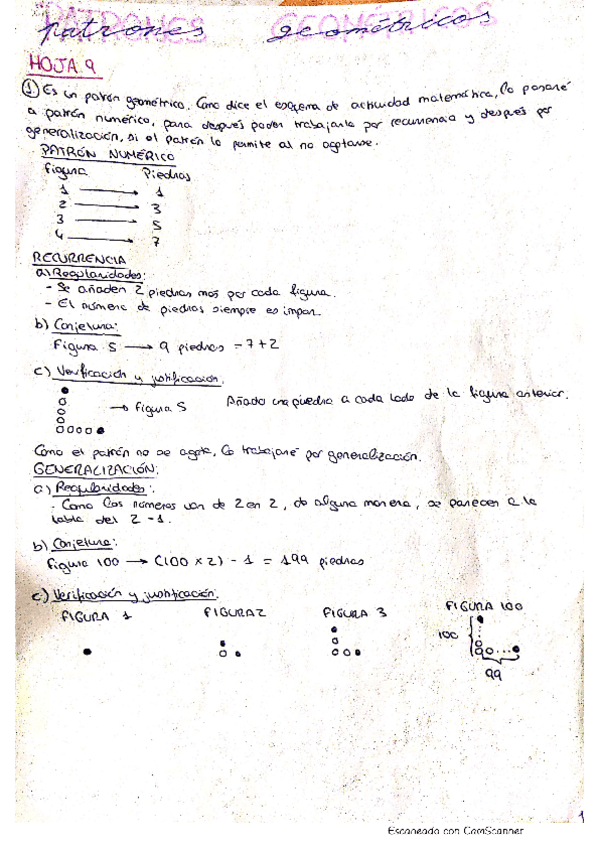 patrones geométricos
HOJA 9
① Es un patrón geométrico. Como dice el esquema de actividad matemática, lo pasaré
a patrón numérico, para después poder trabajarlo por recurrencia y después por
generalización, si el patrón lo permite al no agotarse.
PATRÓN NUMÉRICO
Figura Piedras
1 → 1
2 → 3
3 → 5
4 → 7
RECURRENCIA
a) Regularidades:
- Se añaden 2 piedras más por cada figura.
- El número de piedras siempre es impar.
b) Conjetura:
Figura 5 → 9 piedras = 7+2
c) Verificación y justificación.
→ figura 5 Añado una piedra a cada lado de la figura anterior.
Como el patrón no se agota, lo trabajaré por generalización.
GENERALIZACIÓN:
a) Regularidades:
- Como los números van de 2 en 2, de alguna manera, se parecen a la
tabla del 2 -1.
b) Conjetura:
Figura 100 → (100 x 2) - 1 = 199 piedras
c) Verificación y justificación:
FIGURA 1 FIGURA 2 FIGURA 3 FIGURA 100
100
99
1
Escaneado con CamScanner